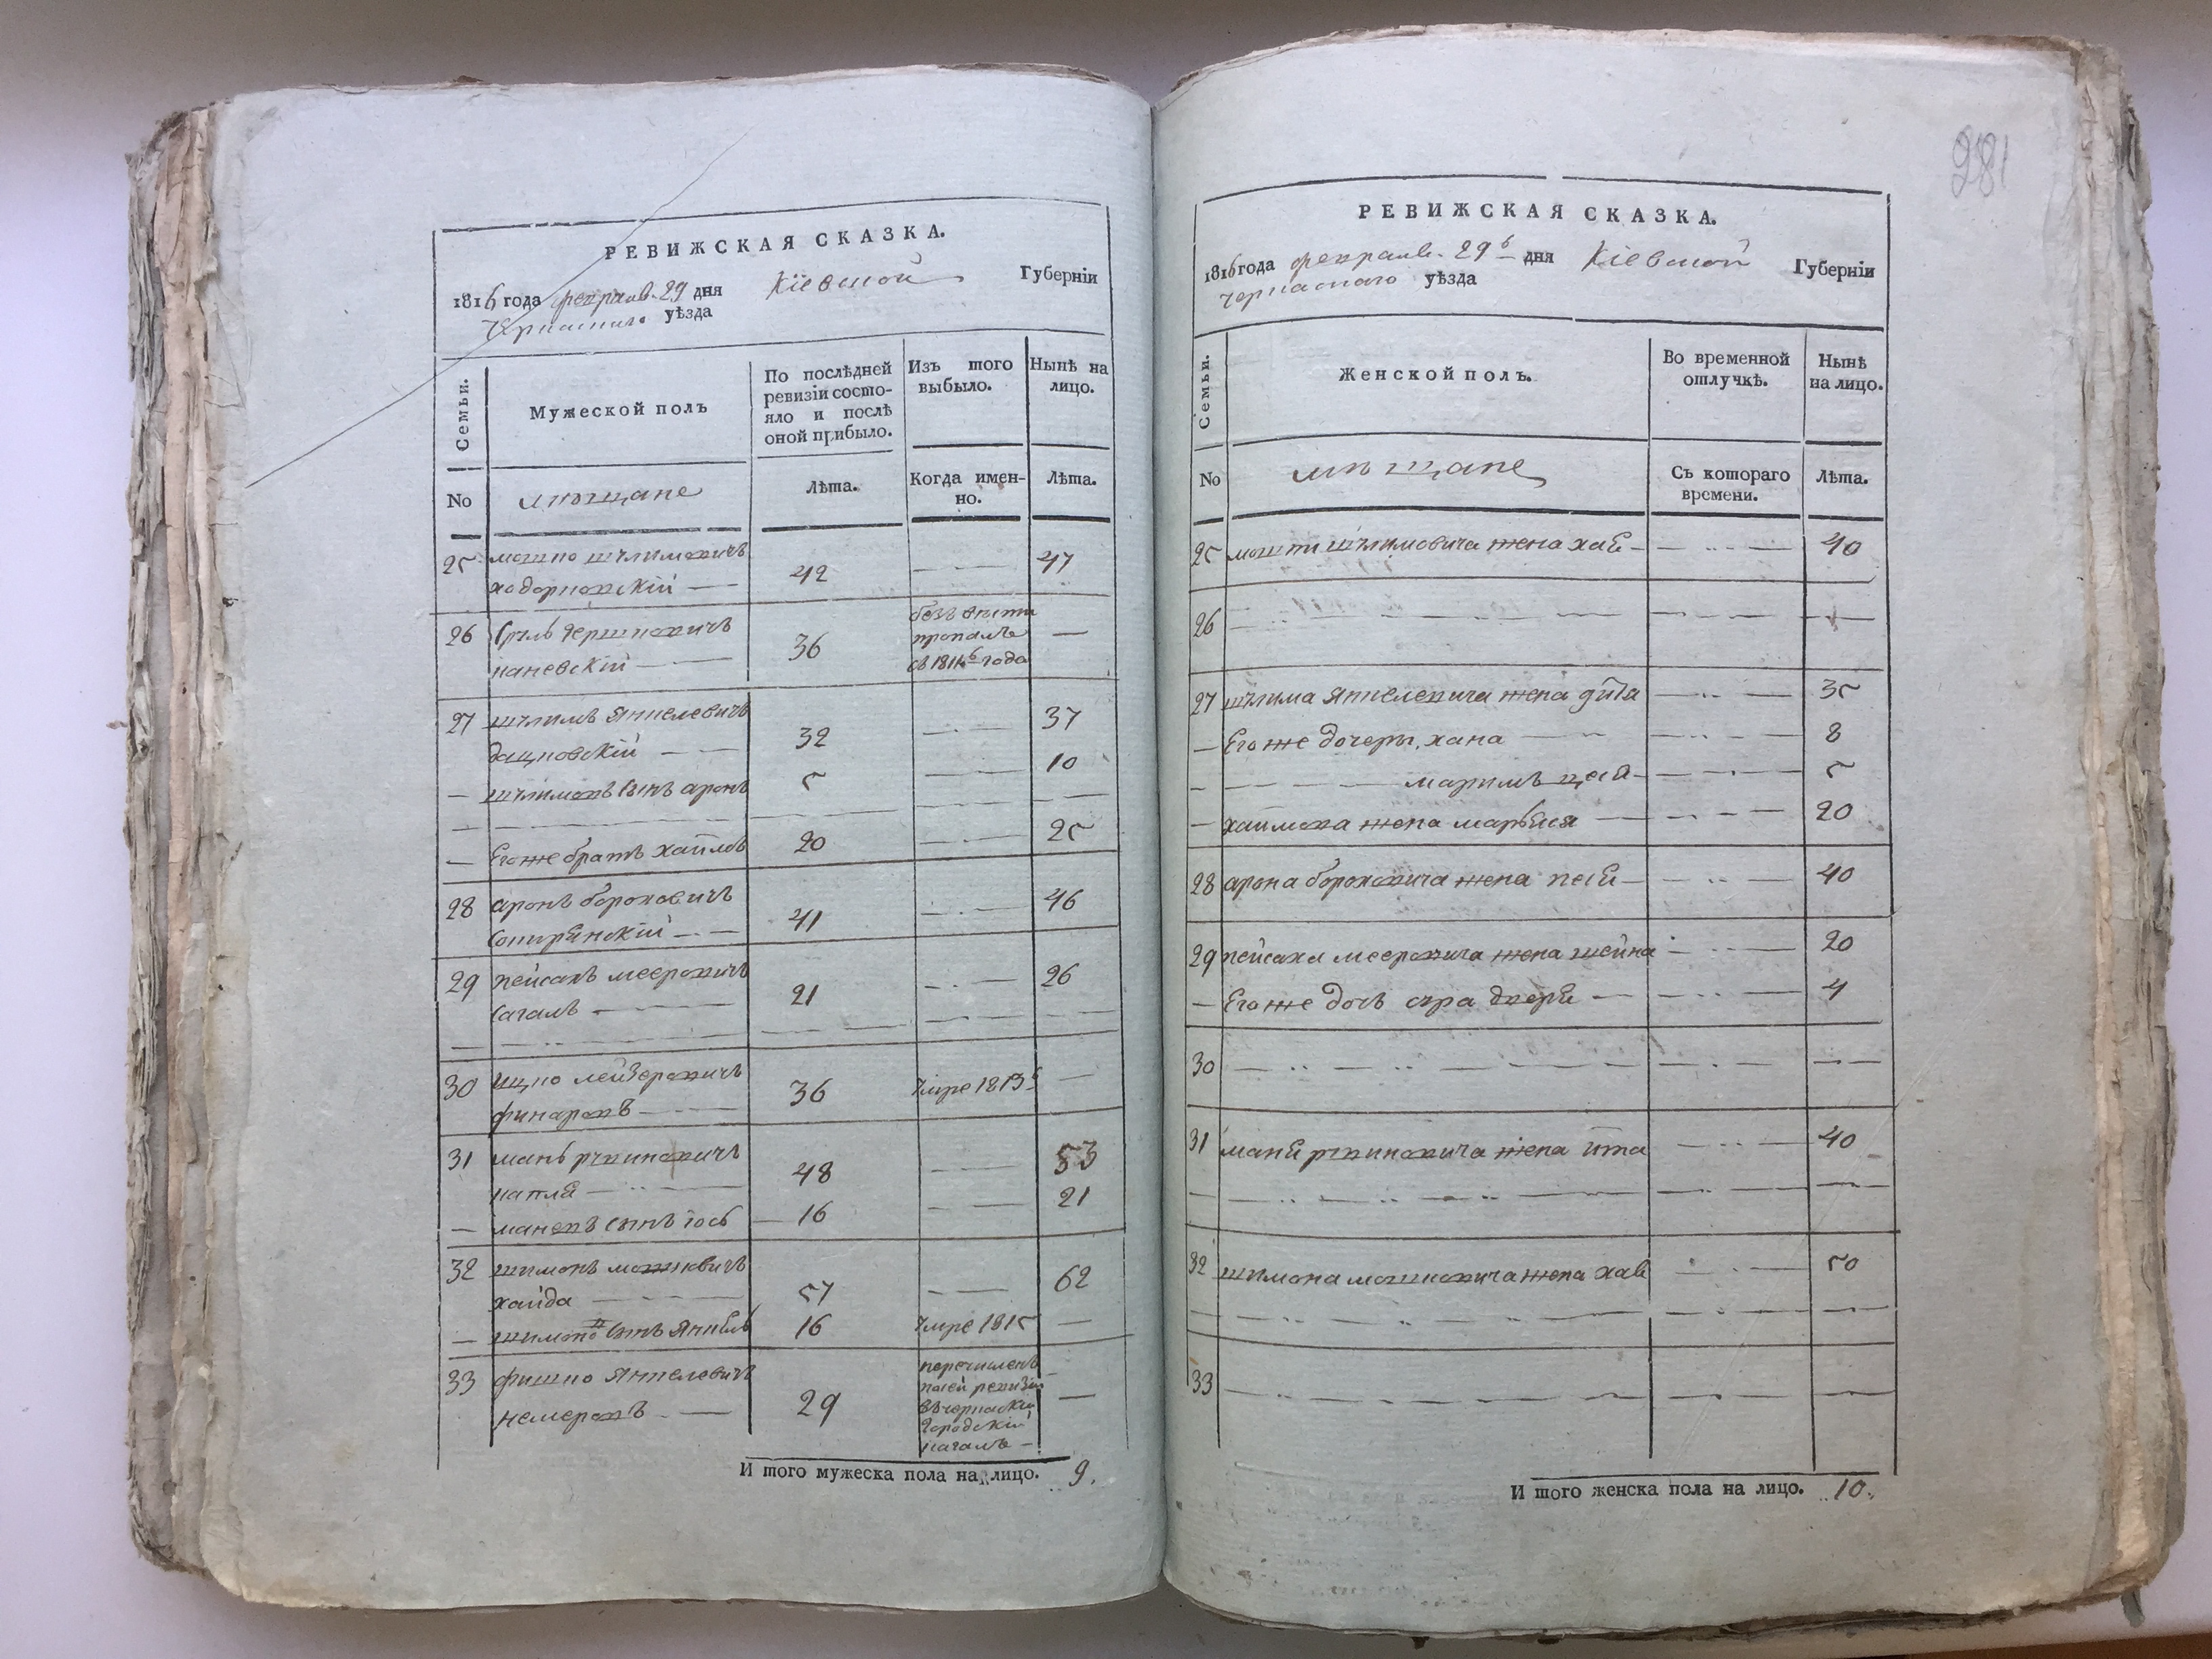 РЕВИЖСКАЯ СКАЗКА.
1816 года феврал. 29 дня Кіевской Губерніи
Черкаскаго уѣзда
Семьи.
Мужеской полъ
По послѣдней
ревизіи состо-
яло и послѣ
оной прибыло.
Изъ того
выбыло.
Нынѣ на
лицо.
No
мѣщане
Лѣта.
Когда имен-
но.
Лѣта.
25 мошко шлимовичъ
ходорковскій 42 47
26 Сруль гершковичъ
каневскій 36
безъ вѣсти
пропалъ
съ 1811го года
27 шлимъ Янкелевичъ
дацковскій 32 37
шлимовъ Сынъ аронъ 5 10
Его же братъ хаимъ 20 25
28 аронъ бороховичъ
41 46
29 пейсахъ мееровичъ
Сагалъ 21 26
30 ицко лейзеровичъ
36 Умре 1813
31 мань рувиновичъ
капля 48 53
маневъ Сынъ іось 16 21
32 шимонъ мошковичъ
хайда 57 62
шимоно Сынъ Янкель 16 Умре 1815
33 фишко Янкелевичъ
немеровъ 29
перечисленъ
по сей ревизіи
въ черкаскій
Городскій
кагалъ
И того мужеска пола на лицо. 9.
281
РЕВИЖСКАЯ СКАЗКА.
1816 года феврал. 29 дня Кіевской Губерніи
Черкаскаго уѣзда
Семьи.
Женской полъ.
Во временной
отлучкѣ.
Нынѣ
на лицо.
No
мѣщане
Съ котораго
времени.
Лѣта.
25 мошки шлимовича жена хая 40
26
27 шлима Янкелевича жена 35
Его же дочеры, хана 8
5
хаимова жена марьяся 20
28 арона бороховича жена песя 40
29 пейсаха мееровича жена шейна 20
Его же дочь сура дверя 4
30
31 маня рувиновича жена ита 40
32 шимона мошковича жена хая 50
33
И того женска пола на лицо. 10.